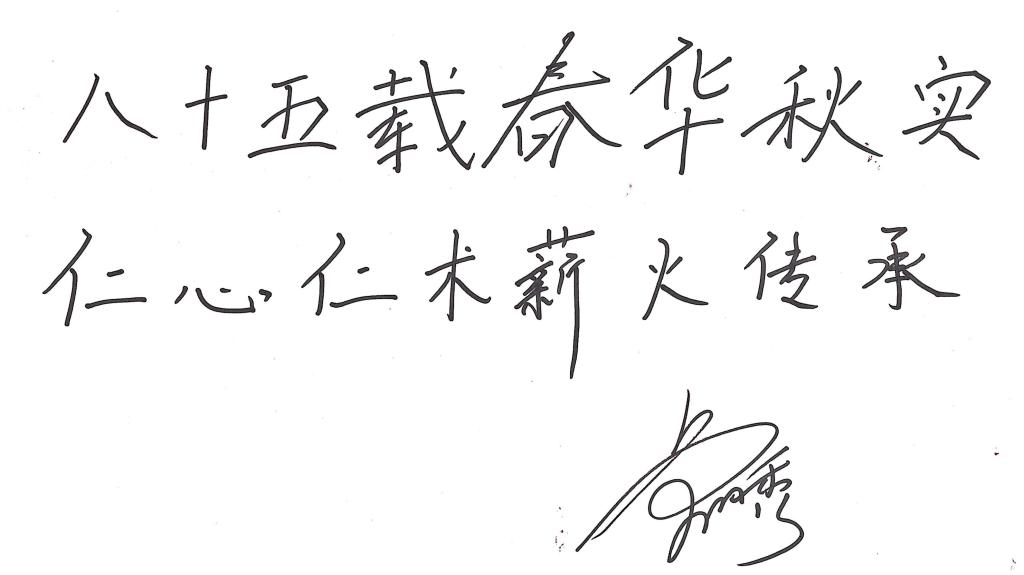 八十五载春华秋实
仁心仁术薪火传承